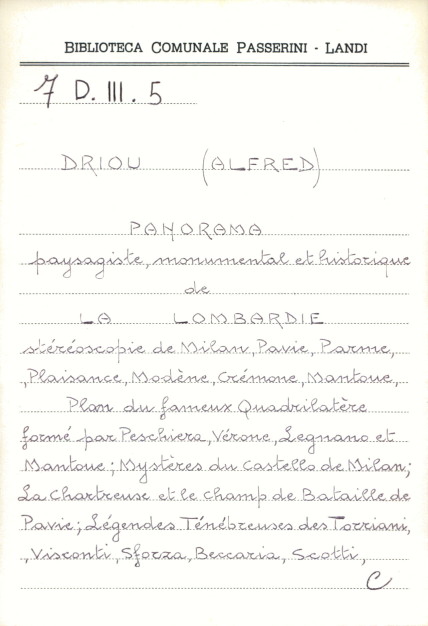 BIBLIOTECA COMUNALE PASSERINI - LANDI
7 D. III. 5
DRIOU (ALFRED)
PANORAMA
paysagiste, monumental et historique
de
LA LOMBARDIE
stéréoscopie de Milan, Pavie, Parme,
,Plaisance, Modène, Crémone, Mantoue,
Plan du fameux Quadrilatère
formé par Peschiera, Vérone, Legnano et
Mantoue; Mystères du Castello de Milan;
La Chartreuse et le Champ de Bataille de
Pavie; Légendes Ténébreuses des Torriani,
,Visconti, Sforza, Beccaria, Scotti,
C